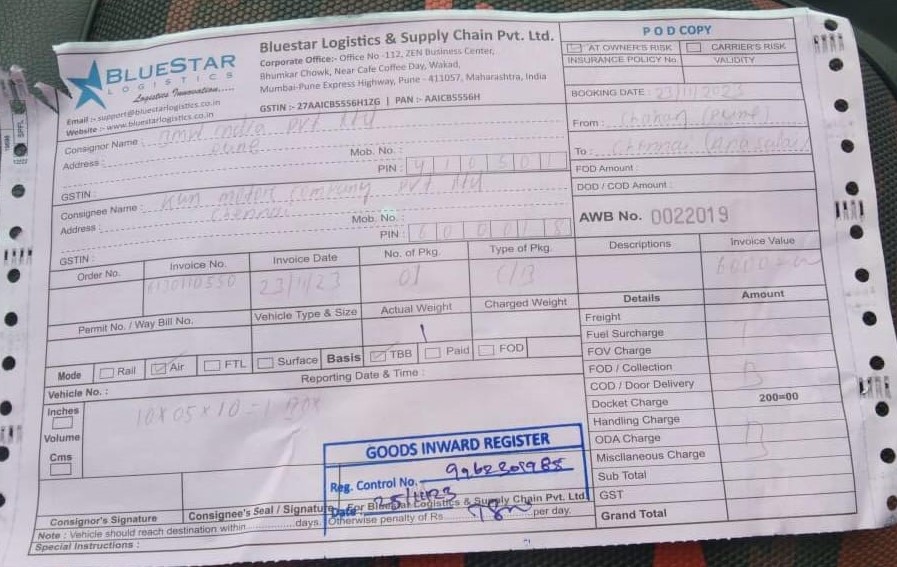 BLUESTAR
LOGISTICS
Logistics Innovation.....
Email :- support@bluestarlogistics.co.in
Website :- www.bluestarlogistics.co.in
Bluestar Logistics & Supply Chain Pvt. Ltd.
Corporate Office:- Office No -112, ZEN Business Center,
Bhumkar Chowk, Near Cafe Coffee Day, Wakad,
Mumbai-Pune Express Highway, Pune - 411057, Maharashtra, India
GSTIN :- 27AAICB5556H1ZG | PAN :- AAICB5556H
POD COPY
AT OWNER'S RISK CARRIER'S RISK
INSURANCE POLICY No. VALIDITY
BOOKING DATE : 23/11/2023
From : Chakan (Pune)
To : Chennai
FOD Amount :
DOD / COD Amount :
AWB No. 0022019
Consignor Name : India Pvt Ltd
Address : Pune
Mob. No. :
PIN : 410501
GSTIN :
Consignee Name : Kun motor Company Pvt Ltd
Address : Chennai
Mob. No. :
PIN : 600018
GSTIN :
Order No. Invoice No. Invoice Date No. of Pkg. Type of Pkg. Descriptions Invoice Value
23/11/23 01 C/B
Permit No. / Way Bill No. Vehicle Type & Size Actual Weight Charged Weight Details Amount
1
Mode Rail Air FTL Surface Basis TBB Paid FOD
Vehicle No. : Reporting Date & Time :
Inches
Volume
Cms
10 x 05 x 10 = 1
Freight
Fuel Surcharge
FOV Charge
FOD / Collection
COD / Door Delivery
Docket Charge 200=00
Handling Charge
ODA Charge
Miscllaneous Charge
Sub Total
GST
Grand Total
GOODS INWARD REGISTER
Reg. Control No. 9962301985
Date : 25/11/23
Consignor's Signature Consignee's Seal / Signature For Bluestar Logistics & Supply Chain Pvt. Ltd.
Note : Vehicle should reach destination within ............. days. Otherwise penalty of Rs. ............. per day.
Special Instructions :